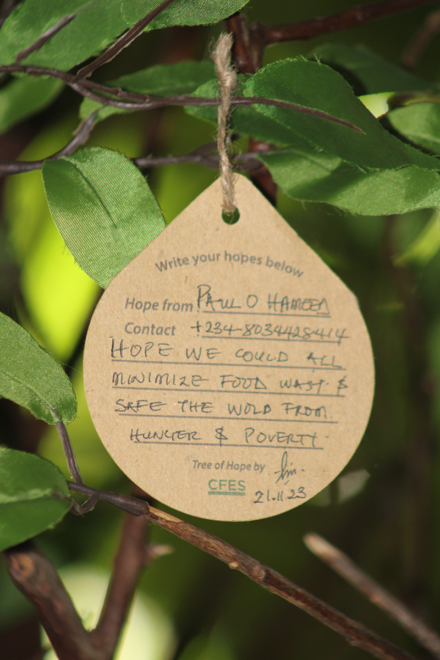 Write your hopes below
Hope from PAUL O HAMEED
Contact +234-8034428414
HOPE WE COULD ALL
MINIMIZE FOOD WAST &
SAFE THE WOLD FROM
HUNGER & POVERTY.
Tree of Hope by
CFES
21.11.23